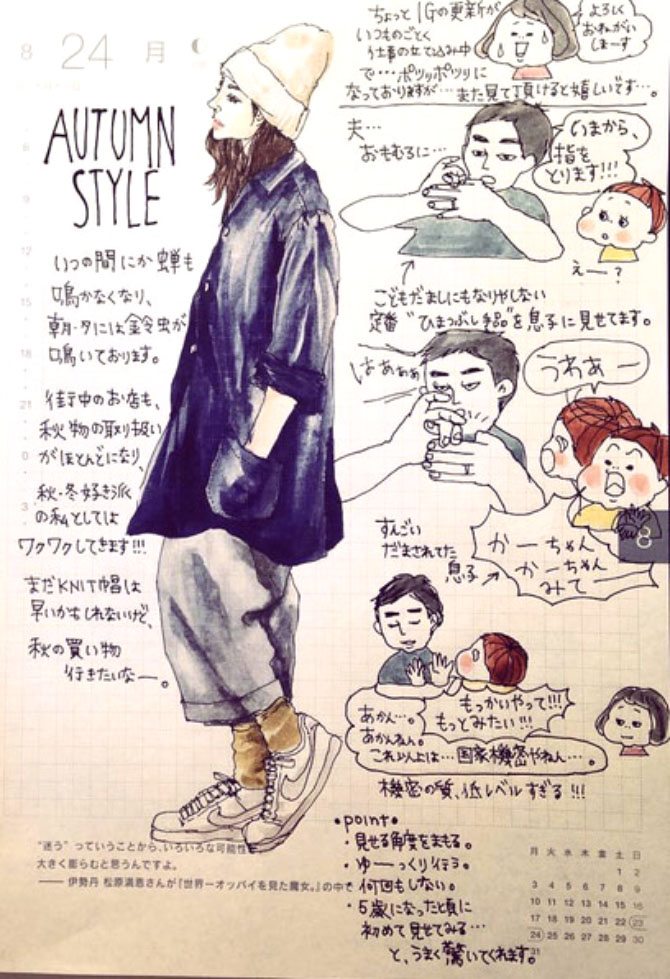 8 24 月
AUTUMN
STYLE
いつの間にか蝉も
鳴かなくなり、
朝・夕には鈴虫が
鳴いております。
街中のお店も、
秋物の取り扱い
がほとんどになり、
秋・冬好き派
の私としては
ワクワクしてきます!!!
まだKNIT帽は
早いかもしれないけど、
秋の買い物
行きたいなー。
ちょっとIGの更新が
いつものごとく
仕事の立て込み中
で…ポツリポツリに
なっておりますが…また見て頂けると嬉しいです…。
よろしく
おねがい
しまーす
夫…
おもむろに…
いまから、
指を
とります!!!
えー?
こどもだましにもなりやしない
定番"ひまつぶし手品"を息子に見せてます。
はぁぁぁ
うわぁー
すんごい
だまされてた
息子
かーちゃん
かーちゃん
みてー
8
もっかいやって!!!
もっとみたい!!!
あかん…。
あかんねん。
これ以上は…国家機密やねん…。
機密の質、低レベルすぎる!!!
•point•
・見せる角度をまもる。
・ゆーーっくり行う。
・何回もしない。
・5歳になった頃に
初めて見せてみる…
と、うまく驚いてくれます。
"迷う"っていうことから、いろいろな可能性
大きく膨らむと思うんですよ。
—— 伊勢丹 松原満恵さんが『世界一オッパイを見た魔女。』の中で
月 火 水 木 金 土 日
1 2
3 4 5 6 7 8 9
10 11 12 13 14 15 16
17 18 19 20 21 22 23
24 25 26 27 28 29 30
31